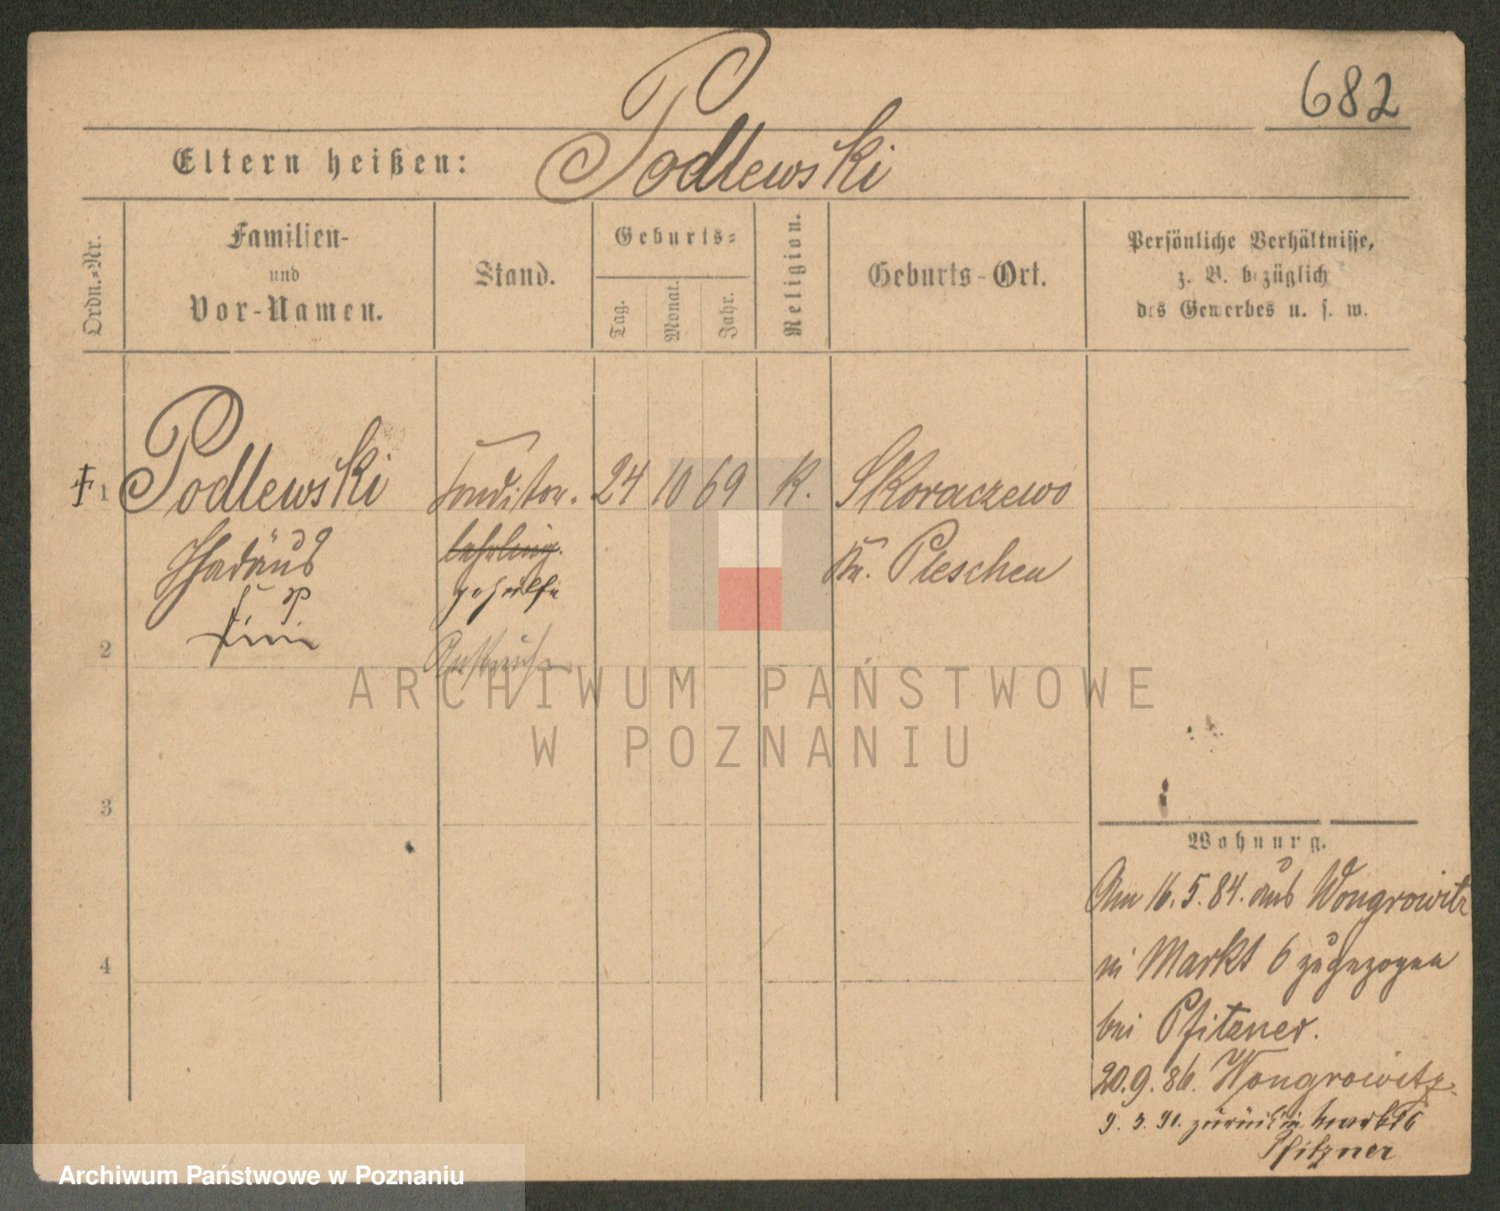 682
Eltern heißen: Podlewski
Ordn.-Nr.
Familien-
und
Vor-Namen.
Stand.
Geburts-
Tag.
Monat.
Jahr.
Religion.
Geburts-Ort.
Persönliche Verhältnisse,
z. B. bezüglich
des Gewerbes u. s. w.
1 Podlewski Conditor- 24 10 69 K. Skoraczewo
Thadäus lehrling. Kr. Pleschen
gehülfe
2
ARCHIWUM PAŃSTWOWE
W POZNANIU
3
Wohnung.
Am 16.5.84. aus Wongrowitz
4 in Markt 6 zugezogen
bei Pfitzner.
20.9.86. Wongrowitz.
zurück in Markt 6
Pfitzner
Archiwum Państwowe w Poznaniu